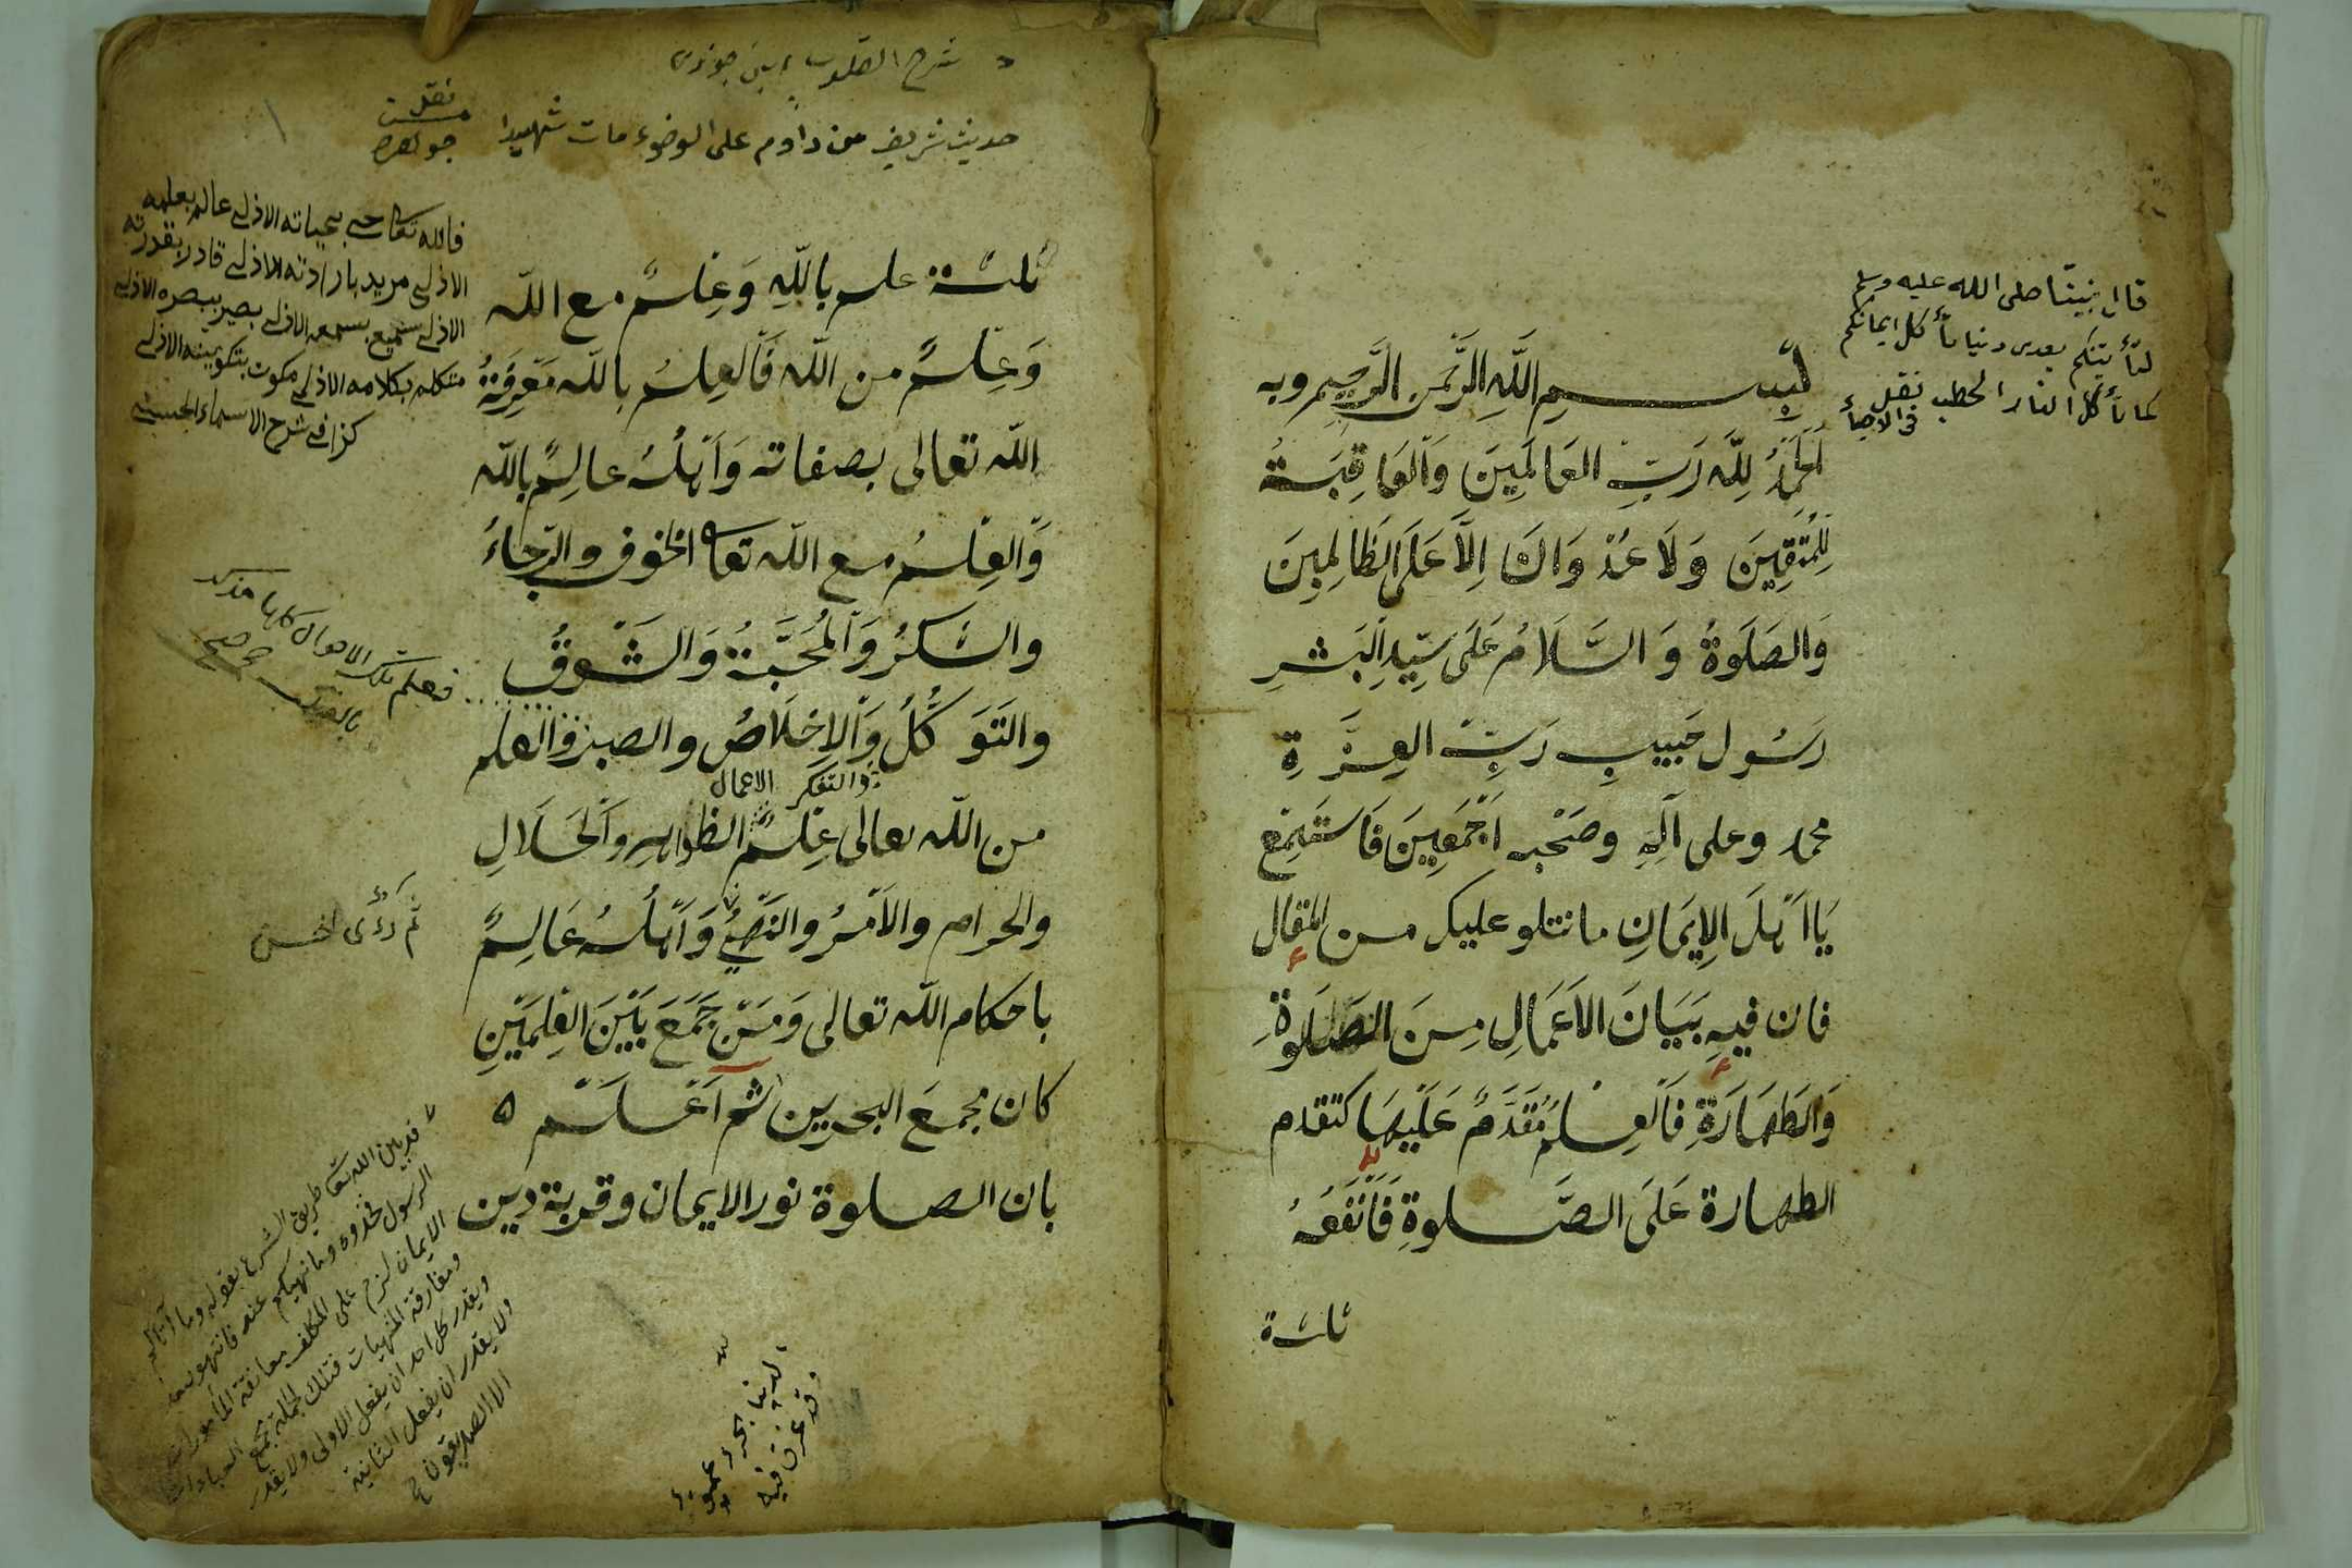 قال نبيّنا صلى الله عليه وسلم
لتأتينكم بعدى دنيا تأكل ايمانكم
كما تأكل النار الحطب نقل
فى الاحياء
بسم الله الرّحمن الرّحيم وبه
اَلْحَمْدُ لِلّٰه رَبِّ العَالَمِينَ وَالْعَاقِبَةُ
لِلْمُتَّقِينَ وَلَا عُدْوَانَ اِلَّا عَلَى الظَالِمِينَ
وَالصَلَوةُ وَ السَّلَامُ عَلَى سَيِّدِ اَلْبَشرِ
رَسُول حَبِيبِ رَبِّ العِزَّةِ
محمد وعلى آلِهِ وصَحْبه اَجْمَعِينَ فَاسْتَمِعْ
يَا اَهْلَ الِايمَانِ ما نتلو عليك من المقال
فان فيهِ بَيَانَ الاَعْمَالِ مِنَ الصَّلَوةِ
وَالطَهَارَةِ فَالْعِلْمُ مُقَدَّمٌ عَلَيْهَا كتقدم
الطهارة عَلَى الصَّلوةِ فَاَنْفَعُهُ
ثلثة
شرح القلوب
حديث شريف من داوم على الوضوء مات شهيدا
نقل من
جواهر
فالله تعالى حى بحياته الازلى عالم بعلمه
الازلى مريد بارادته الازلى قادر بقدرته
الازلى سميع بسمعه الازلى بصير ببصره الازلى
متكلم بكلامه الازلى مكون بتكوينه الازلى
كذا فى شرح الاسماء الحسنى
ثلثة علم باللّٰهِ وَعِلْمٌ مع اللّٰه
وَعِلْمٌ من اللّٰه فَالْعِلْمُ باللّٰه مَعْرِفَةُ
اللّٰه تعالى بصفاته وَاَهْلُهُ عالِمٌ باللّٰه
وَالْعِلْمُ مع اللّٰه تعا الخوف والرّجاءُ
والشكْرُ وَالْمُحَبَّةُ وَالشَّوْقُ
والتَوَكُّلُ وَالْاِخْلَاصُ والصبرُ والعلم
والتفكر الاعمال
من اللّٰه تعالى عِلْمُ الظواهرِ وَالْحَلَالِ
والحرام والاَمْرُ والنَهْىُ وَاَهْلُهُ عَالِمٌ
باحكام اللّٰه تعالى وَمَنْ جَمَعَ بَيْنَ العِلْمَيْنِ
كان مجمعَ البحرين ثم اَعْلَمْ
بان الصلوة نور الايمان وقربة دين
فعلم تلك الاحوال كلها
بالقلب صح صح
قد بين الله تعا طريق الشرع بقوله وما آتاكم
الرسول فخذوه وما نهيكم عنه فانتهوا
الايمان لزم على المكلف معانقة المأمورات
ومفارقة المنهيات فتلك الجملة تجمع العبادات
ويقدر كل احد ان يفعل الاولى ولا يقدر
ولا يقدر ان يفعل الثانية
الا الصديقون
الدنيا بحر عميق
وقد غرق فيه